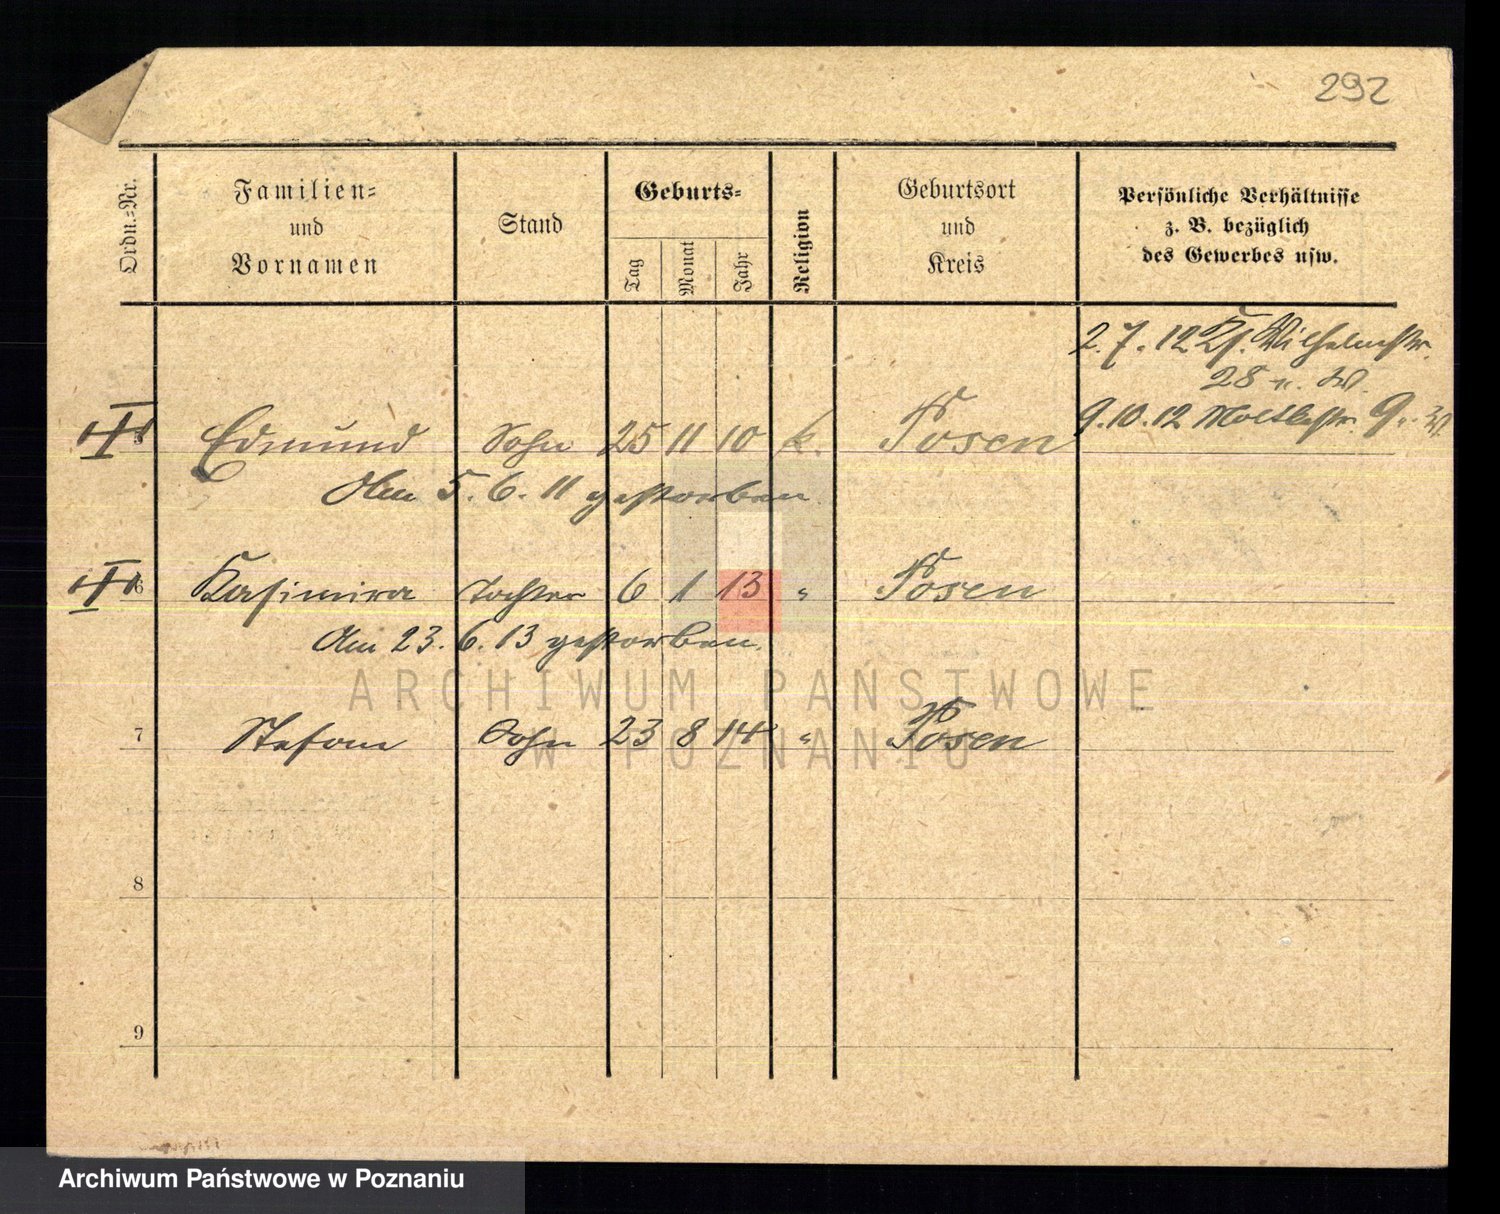 292
Ordn.-Nr.
Familien-
und
Vornamen
Stand
Geburts-
Tag
Monat
Jahr
Religion
Geburtsort
und
Kreis
Persönliche Verhältnisse
z. B. bezüglich
des Gewerbes usw.
2. 7. 12 Wilhelmstr.
28
9. 10. 12 Moltkestr. 9
5 Edmund Sohn 25 11 10 k. Posen
Am 5. 6. 11 gestorben.
6 Kasimira Tochter 6 1 13 " Posen
Am 23. 6. 13 gestorben.
ARCHIWUM PAŃSTWOWE
7 Stefan Sohn 23 8 14 " Posen
W POZNANIU
8
9
Archiwum Państwowe w Poznaniu